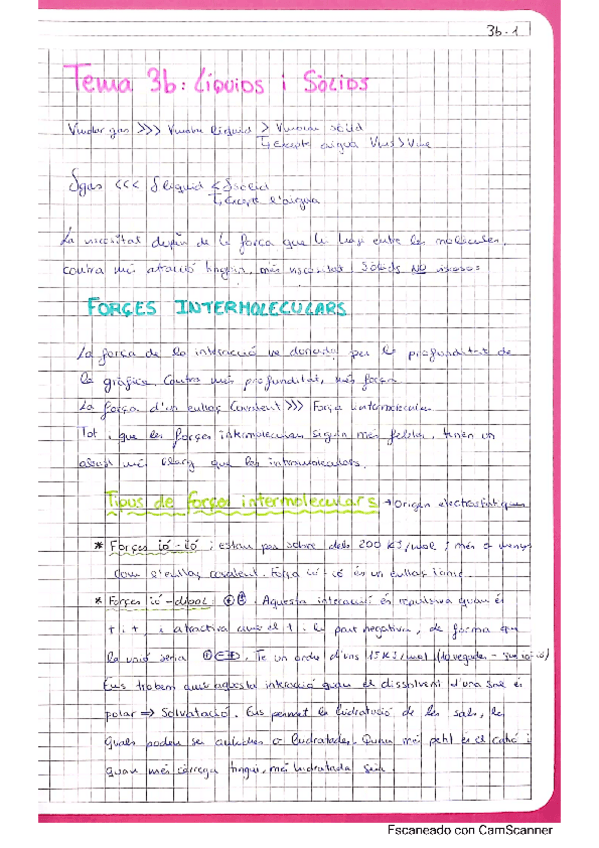 3b.1
Tema 3b: Líquids i Sòlids
Vmolar gas >>> Vmolar líquid > Vmolar sòlid
↳ Excepte aigua
Sgas <<< Slíquid < Ssòlid
↳ Excepte l'aigua
La viscositat depèn de la força que hi hagi entre les molècules,
contra més atracció tinguin, més viscositat. Sòlids NO viscosos
FORÇES INTERMOLECULARS
La força de la interacció ve donada per la profunditat de
la gràfica. Contra més profunditat, més força
La força d'un enllaç Covalent >>> Força intermolecular
Tot i que les forçes intermoleculars siguin més febles, tenen un
abast més llarg que les intramoleculars.
Tipus de forçes intermoleculars → Origen electrostàtiques
* Forçes ió-ió: estan per sobre dels 200 KJ/mol; més o menys
com s'enllaç covalent. Força ió-ió és un enllaç iònic
* Forçes ió-dipol: Aquesta interacció és repulsiva quan és
+ i +, i atractiva amb el + i la part negativa, de forma que
la unió seria. Te un ordre d'uns 15 KJ/mol
Ens trobem amb aquesta interacció quan el dissolvent d'una sal és
polar ⇒ Solvatació. Ens permet la hidratació de les sals, les
quals poden se anhidres o hidratades. Quan més petit és el catió i
quan més càrrega tingui, més hidratada serà.
Escaneado con CamScanner